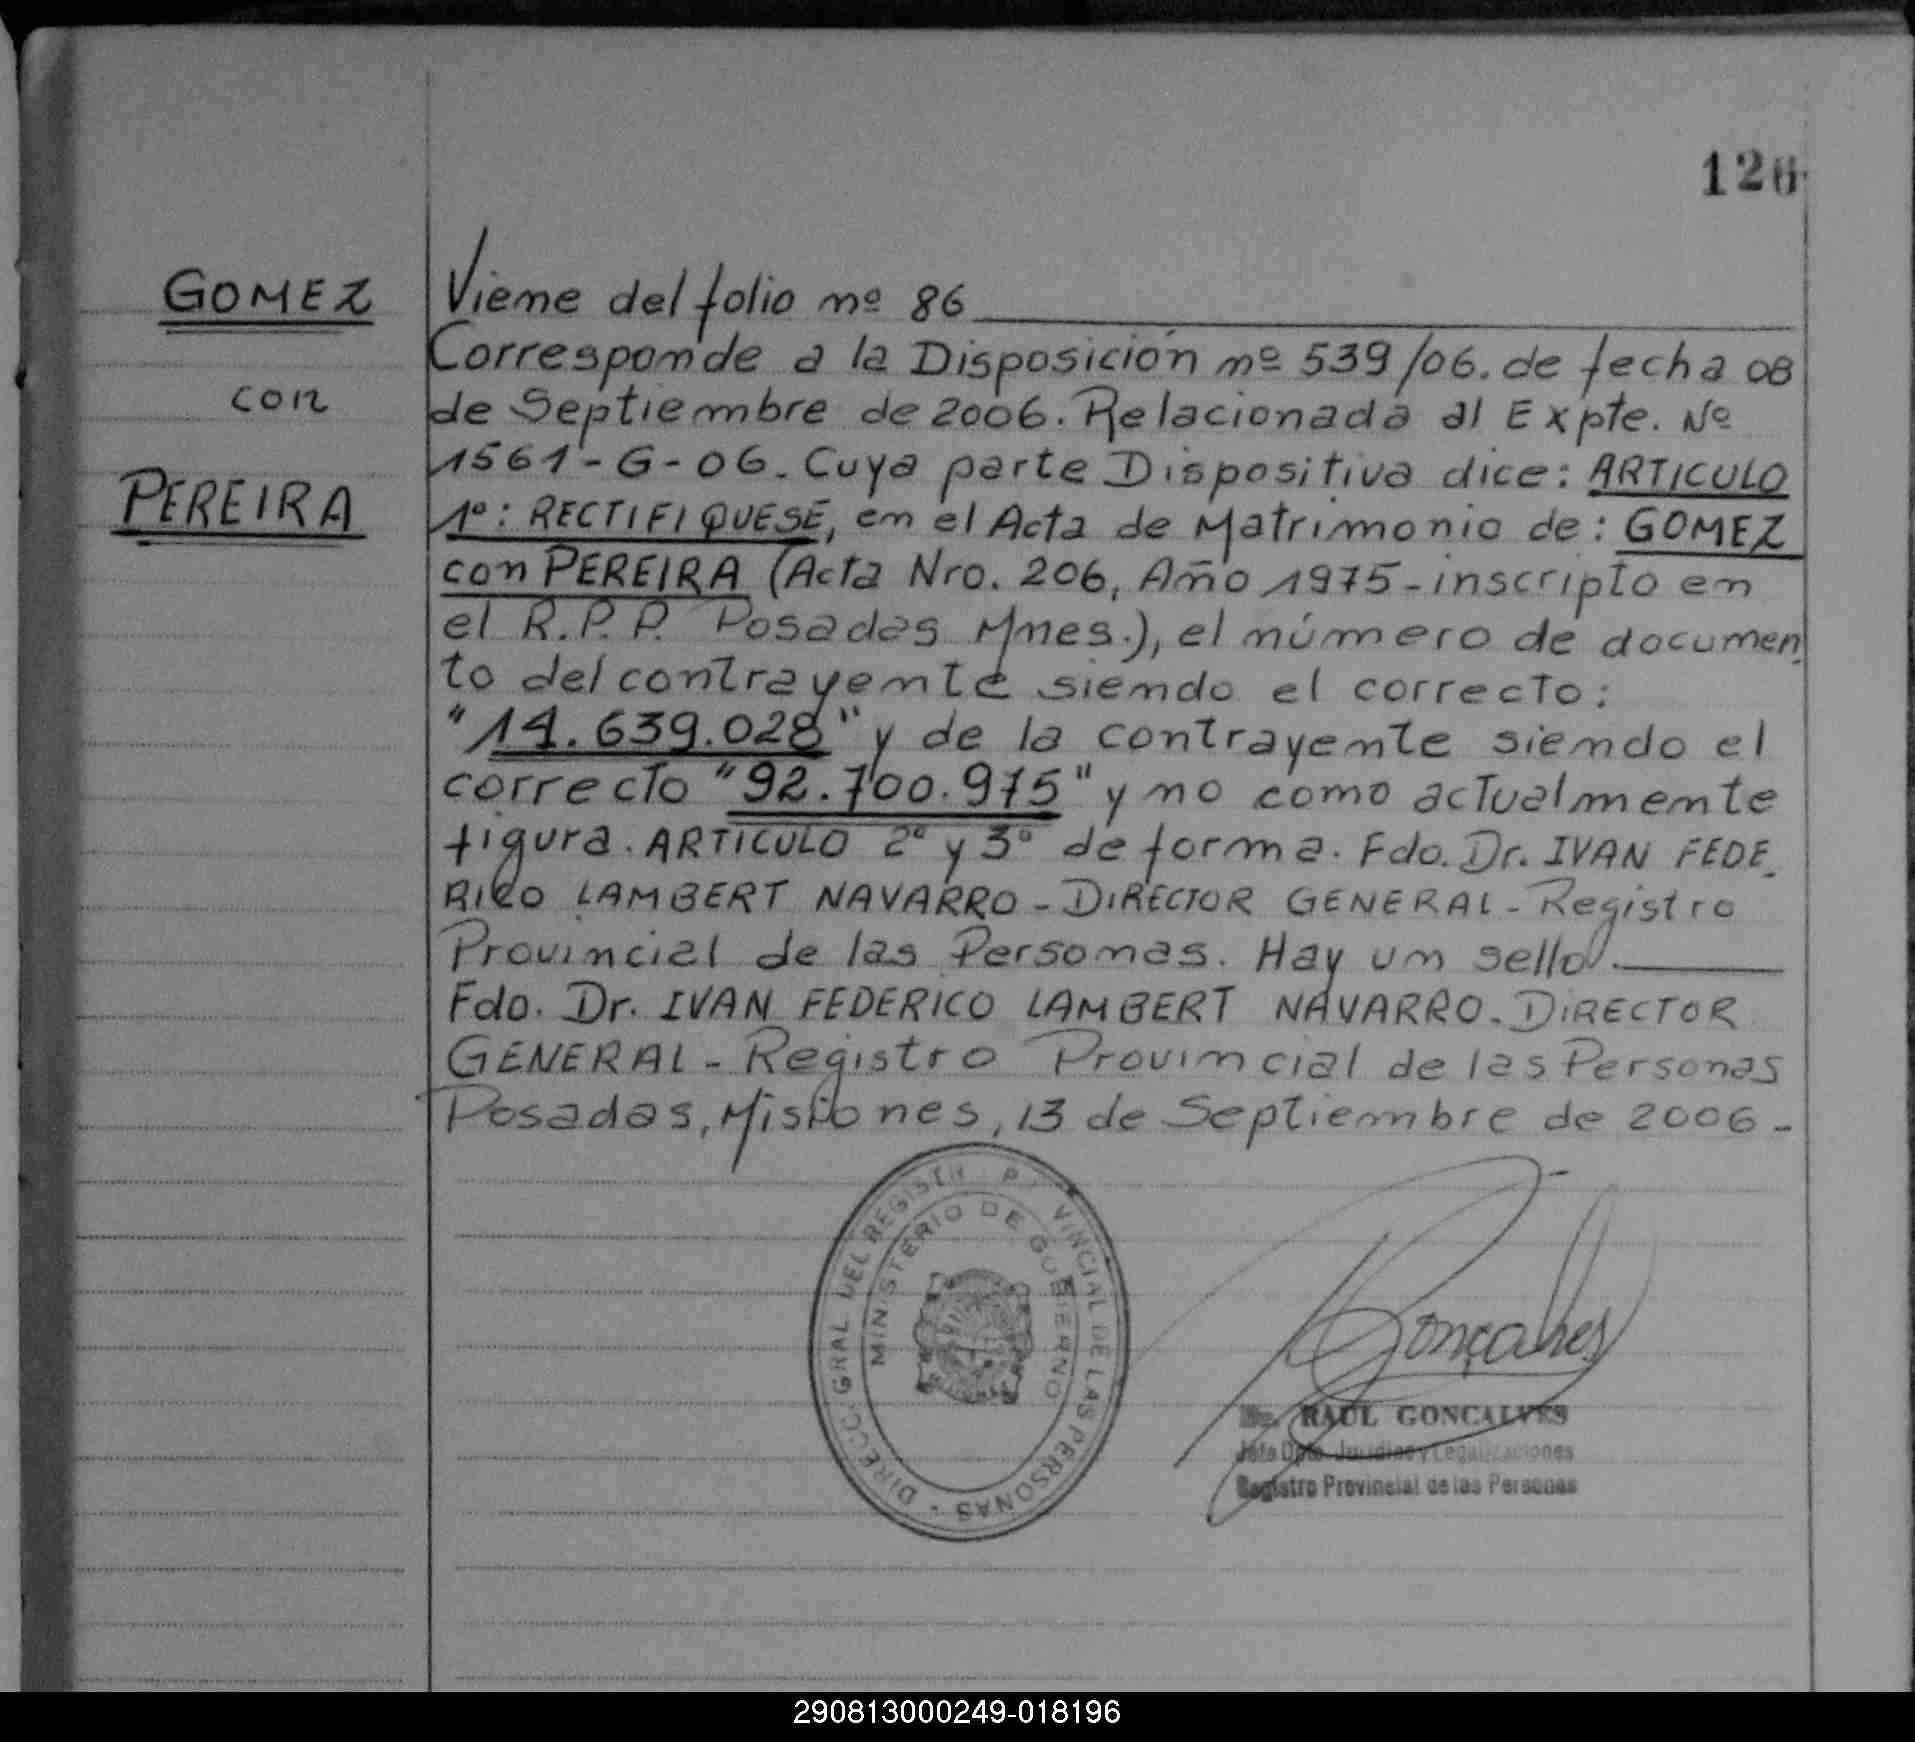 126
GOMEZ
con
PEREIRA
Viene del folio nº 86
Corresponde a la Disposición nº 539/06. de fecha 08
de Septiembre de 2006. Relacionada al Expte. Nº
1561-G-06. Cuya parte Dispositiva dice: ARTICULO
1º: RECTIFIQUESE, en el Acta de Matrimonio de: GOMEZ
con PEREIRA (Acta Nro. 206, Año 1975-inscripto en
el R.P.P. Posadas Mnes.), el número de documen
to del contrayente siendo el correcto:
"14.639.028" y de la contrayente siendo el
correcto "92.700.975" y no como actualmente
figura. ARTICULO 2º y 3º de forma. Fdo. Dr. IVAN FEDE
RICO LAMBERT NAVARRO - DIRECTOR GENERAL - Registro
Provincial de las Personas. Hay un sello.
Fdo. Dr. IVAN FEDERICO LAMBERT NAVARRO. DIRECTOR
GENERAL - Registro Provincial de las Personas
Posadas, Misiones, 13 de Septiembre de 2006 -
DIRECC. GRAL DEL REGISTR P VINCIAL DE LAS PERSONAS
MINISTERIO DE GOBIERNO
Goncalves
Dr. RAUL GONCALVES
Jefe Dpto. Jurídico y Legalizaciones
Registro Provincial de las Personas
290813000249-018196